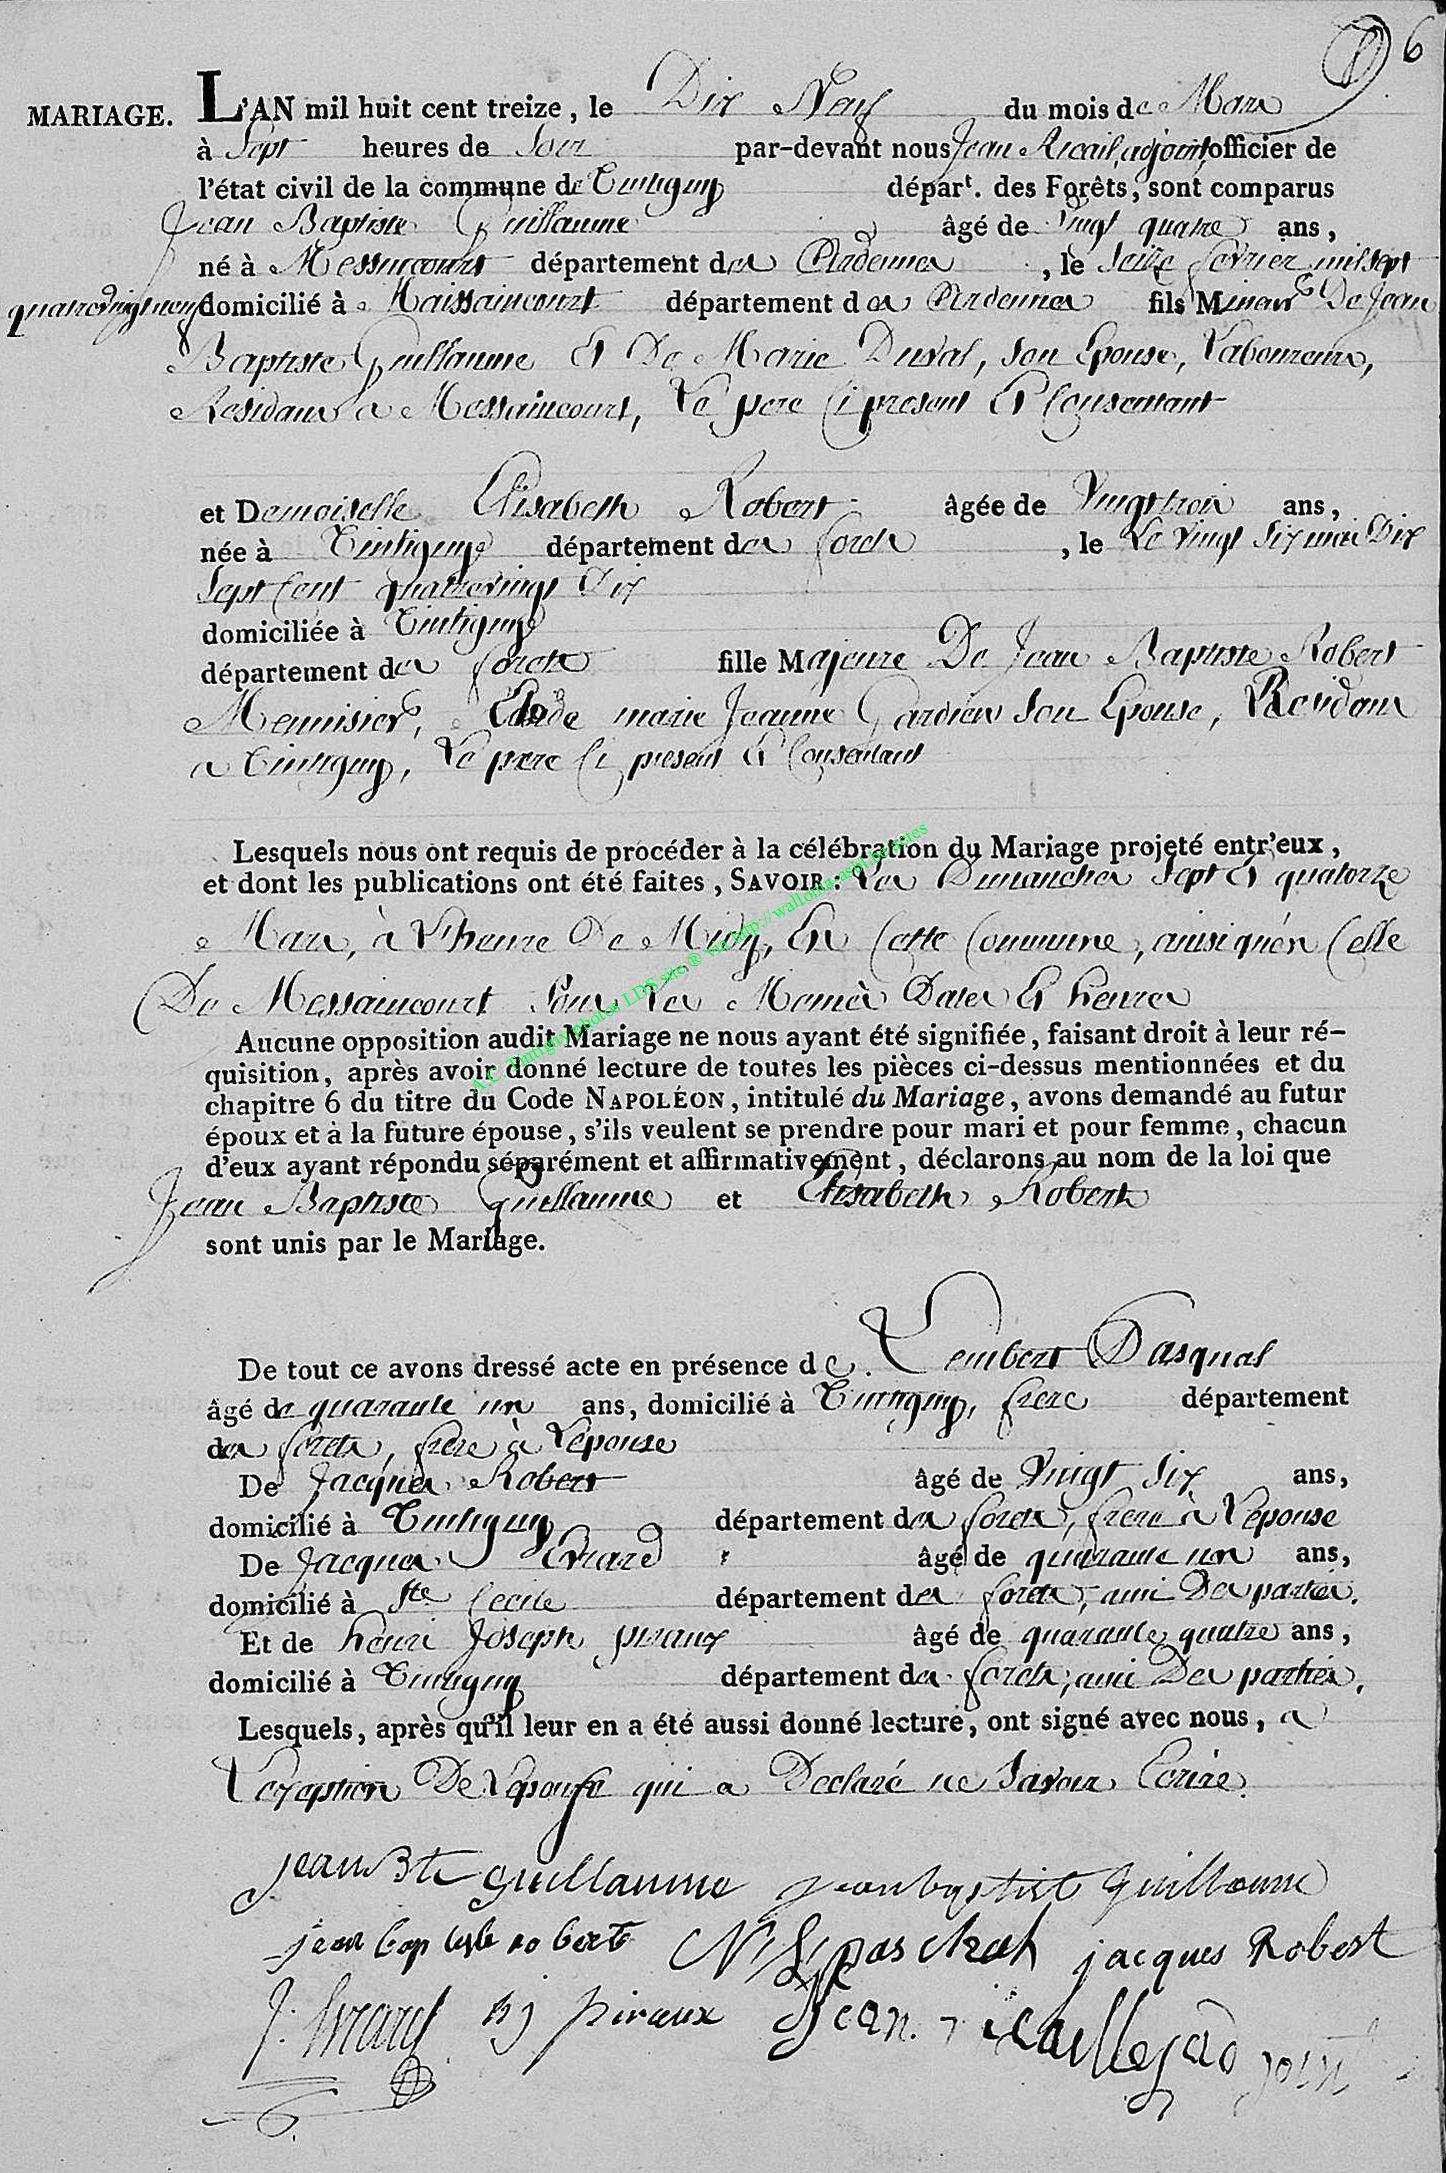 6
MARIAGE. L'AN mil huit cent treize, le Dix Neuf du mois de Mars
à Sept heures de Soir par-devant nous Jean Ricail, adjoint officier de
l'état civil de la commune de Tintigny départ. des Forêts, sont comparus
Jean Baptiste Guillaume âgé de Vingt quatre ans,
né à Messincourt département des Ardennes, le Seize fevrier mil sept
quatrevingt neuf domicilié à Maissaincourt département des Ardennes fils Mineur De Jean
Baptiste Guillaume Et De Marie Duval, Son Epouse, Laboureurs,
Residans a Messaincourt, Le pere Ci present Et Consentant
et Demoiselle Elisabeth Robert âgée de Vingt trois ans,
née à Tintigny département des forets, le Le Vingt Six mai Dix
Sept Cent quatrevingt Dix
domiciliée à Tintigny
département des forets fille Majeure De Jean Baptiste Robert
Menuisier, Et de marie Jeanne Gardien Son Epouse, Residans
a Tintigny, Le pere Ci present Et Consentant
Lesquels nous ont requis de procéder à la célébration du Mariage projeté entr'eux,
et dont les publications ont été faites, SAVOIR: Les Dimanches Sept Et quatorze
Mars, à L'heure De Midy, En Cette Commune, ainsi qu'en Celle
De Messaincourt Sous Les Memes Dates Et heures
A.C. Tintigny photos LDS site ® via http://wallonia-asbl.be/actes
Aucune opposition audit Mariage ne nous ayant été signifiée, faisant droit à leur ré-
quisition, après avoir donné lecture de toutes les pièces ci-dessus mentionnées et du
chapitre 6 du titre du Code NAPOLÉON, intitulé du Mariage, avons demandé au futur
époux et à la future épouse, s'ils veulent se prendre pour mari et pour femme, chacun
d'eux ayant répondu séparément et affirmativement, déclarons au nom de la loi que
Jean Baptiste Guillaume et Elisabeth Robert
sont unis par le Mariage.
De tout ce avons dressé acte en présence de Lembert Pasqual
âgé de quarante un ans, domicilié à Tintigny, frere département
des forets, frere à L'epouse
De Jacques Robert âgé de Vingt Six ans,
domicilié à Tintigny département des forets, frere à L'epouse
De Jacques Evrard âgé de quarante un ans,
domicilié à Ste Cecile département des forets, ami Des parties.
Et de henri Joseph piraux âgé de quarante quatre ans,
domicilié à Tintigny département des forets, ami Des parties.
Lesquels, après qu'il leur en a été aussi donné lecture, ont signé avec nous, a
L'exeption De L'epouse qui a Declaré ne Savoir Ecrire.
jean Bte guillaume jean baptist guillaume
jean baptiste robert paschal jacques Robert
J. Evrard hj piraux Jean ricaille adjoint